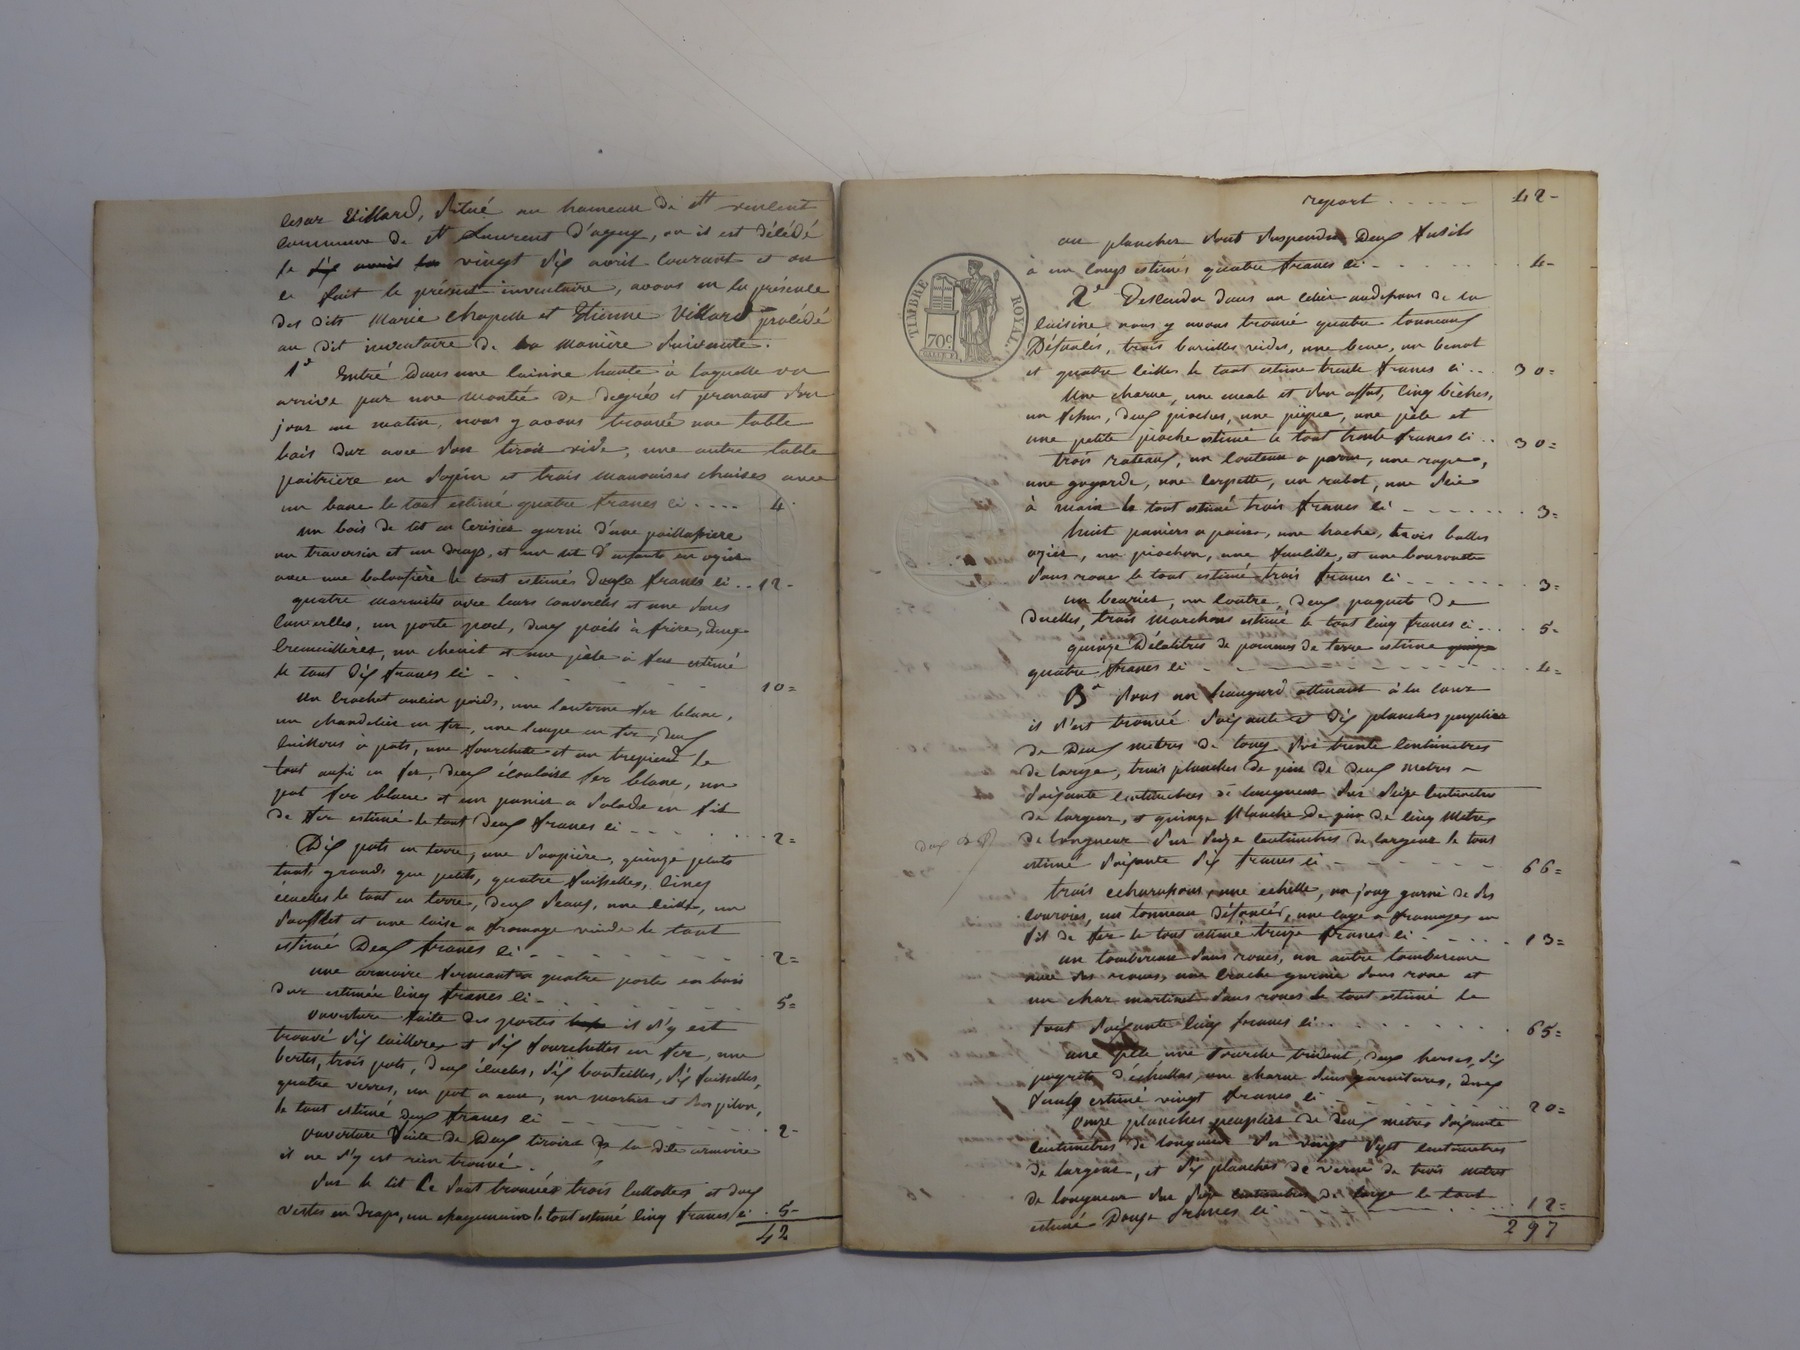 Cesar Villard, situé au hameau de St vincent
commune de St Laurent d'agny, où il est décédé
le six avril vingt six avril courant et où
se fait le présent inventaire, avons en la présence
des dits Marie Chapelle et Etienne Villard procédé
au dit inventaire de la manière suivante.
1° Entré dans une cuisine haute à laquelle on
arrive par une montée de degrés et prenant son
jour au matin, nous y avons trouvé une table
bois dur avec son tiroir vide, une autre table
paitriere en sapin et trois mauvaises chaises avec
un banc le tout estimé quatre francs ci .... 4.
un bois de lit en cerisier garni d'une paillassiere
un traversin et un drap, et un lit d'enfants en ozier
avec une balouffière le tout estimés douze francs ci .. 12-
quatre marmites avec leurs couvercles et une sans
couvercles, un porte poel, deux poëls à frire, deux
cremaillères, un chenit et une pèle à feu estimé
le tout dix francs ci - - - - 10=
un crochet ancien poids, une lanterne fer blanc,
un chandelier en fer, une lampe en fer, deux
cuillers à pots, une fourchette et un trepied le
tout aussi en fer, deux écouloirs fer blanc, un
pot fer blanc et un panier a salade en fil
de fer estimé le tout deux francs ci - - - 2=
Dix pots en terre, une soupière, quinze plats
tant grands que petits, quatre faisselles, cinq
écuelles le tout en terre, deux seaux, une seille, un
soufflet et une caise a fromage vuide le tout
estimé deux francs ci - - - - 2=
une armoire fermant a quatre porte en bois
dur estimée cinq francs ci - - - - 5=
ouverture faite des portes il s'y est
trouvé six cuilleres et six fourchettes en fer, une
bertes, trois pots, deux écuelles, six bouteilles, six faisselles,
quatre verres, un pot a eau, un mortier et son pilon,
le tout estimé deux francs ci - - - - 2-
ouverture faite de deux tiroirs de la dite armoire
il ne s'y est rien trouvé.
sur le lit se sont trouvées trois culottes et deux
vestes en drap, un le tout estimé cinq francs ci . 5-
42
report . . . . . 42-
au plancher sont suspendu deux fusils
à un coup estimés quatre francs ci - - - - 4-
2° Descendu dans un celier audessous de la
cuisine nous y avons trouvé quatre tonneaux
Défoncés, trois barilles vides, une benne, un benot
et quatre seilles le tout estimé trente francs ci .. 30=
Une charue, une meule et son affut, cinq bèches,
un , deux pioches, une pique, une pèle et
une petite pioche estimé le tout trente francs ci .. 30=
trois rateaux, un couteau a , une rape,
une goyarde, une serpette, un rabot, une scie
à main le tout estimé trois francs ci - - - - 3=
huit paniers a pains, une hache, trois balles
ozier, un piochon, une faucille, et une bourouette
sans roue le tout estimé trois francs ci - - - - 3=
un beurier, un coutre, deux paquets de
duelles, trois marchons estimé le tout cinq francs ci - . . 5-
quinze Décalitres de pommes de terre estimé quinze
quatre francs ci - - - - 4=
3° Sous un hangard attenant à la cour
il s'est trouvé soixante et dix planches peuplier
de deux metres de long sur trente centimetres
de large, trois planches de pin de deux metres -
soixante centimetres de longueur sur seize centimetres
de largeur, et quinze planche de pin de cinq metres
de longueur sur seize centimetres de largeur le tout
estimé soixante six francs ci - - - - 66=
trois echarassons, une echelle, un joug garni de ses
couroies, un tonneau défoncés, une cage a fromages en
fil de fer le tout estimé treize francs ci - - - - 13=
un tombereau sans roues, un autre tombereau
avec ses roues, une garnie sans roue et
un char martinet sans roues le tout estimé le
tout soixante cinq francs ci . . . . 65=
une pèle, une fourche trident, deux herses, six
paquets d'échallas, une charue sans garnitures, deux
estimé vingt francs ci - - - - 20=
onze planches peuplier de deux metres soixante
centimetres de longueur sur vingt sept centimetres
de largeur, et six planches de verne de trois metres
de longueur sur seize centimetres de large le tout
estimé Douze francs ci - - - - 12=
297
TIMBRE ROYAL
70c